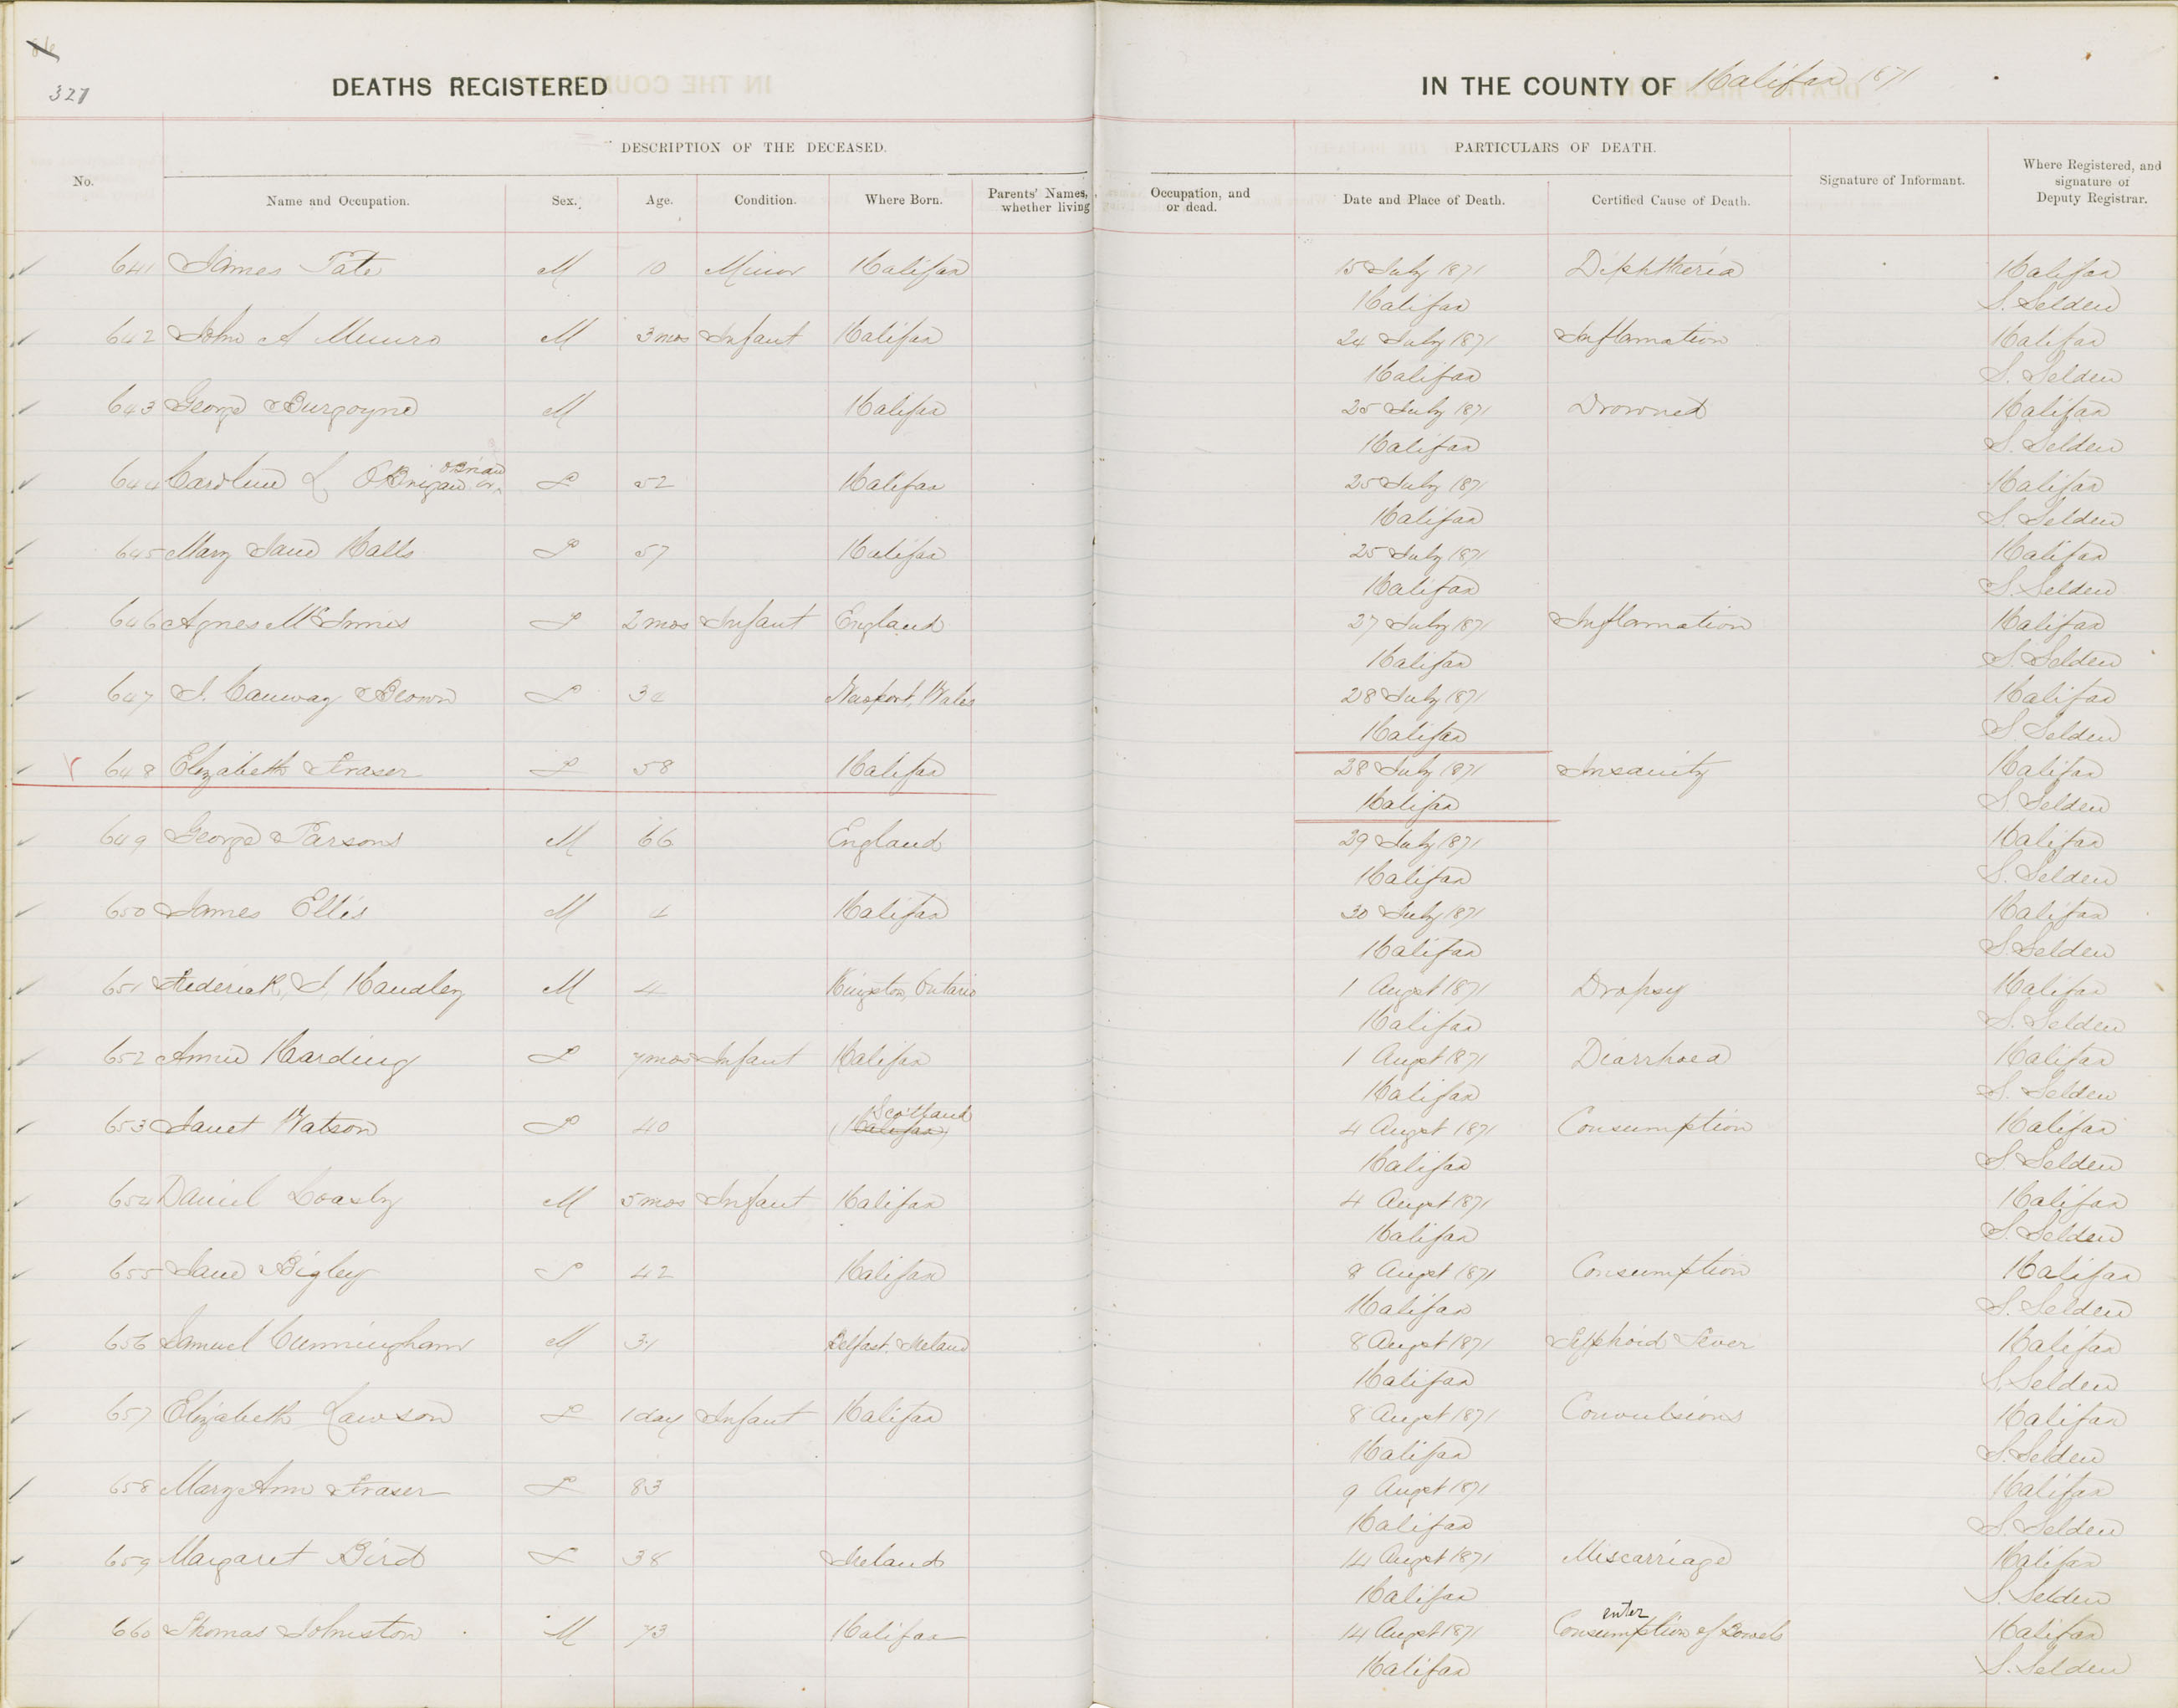 327
DEATHS REGISTERED IN THE COUNTY OF Halifax 1871
DESCRIPTION OF THE DECEASED. PARTICULARS OF DEATH.
No. Name and Occupation. Sex. Age. Condition. Where Born. Parents' Names, Occupation, and whether living or dead. Date and Place of Death. Certified Cause of Death. Signature of Informant. Where Registered, and signature of Deputy Registrar.
641 James Tate M 10 Minor Halifax 15 July 1871 Diphtheria Halifax
Halifax S. Selden
642 John A Munro M 3 mos Infant Halifax 24 July 1871 Inflamation Halifax
Halifax S. Selden
643 George Burgoyne M Halifax 25 July 1871 Drowned Halifax
Halifax S. Selden
O'Brian
644 Caroline L O'Brigan or F 52 Halifax 25 July 1871 Halifax
Halifax S. Selden
645 Mary Jane Halls F 57 Halifax 25 July 1871 Halifax
Halifax S. Selden
646 Agnes McInnis F 2 mos Infant England 27 July 1871 Inflamation Halifax
Halifax S. Selden
647 Canway Brown F 34 Newport, Wales 28 July 1871 Halifax
Halifax S Selden
648 Elizabeth Fraser F 58 Halifax 28 July 1871 Insanity Halifax
Halifax S. Selden
649 George Parsons M 66 England 29 July 1871 Halifax
Halifax S. Selden
650 James Ellis M 4 Halifax 30 July 1871 Halifax
Halifax S. Selden
651 Frederick, J, Handley M 4 Kingston, Ontario 1 Augst 1871 Dropsy Halifax
Halifax S. Selden
652 Annie Harding F 7 mos Infant Halifax 1 Augst 1871 Diarrhoea Halifax
Halifax S. Selden
Scotland
653 Janet Watson F 40 (Halifax) 4 Augst 1871 Consumption Halifax
Halifax S. Selden
654 Daniel Loasby M 5 mos Infant Halifax 4 Augst 1871 Halifax
Halifax S. Selden
655 Jane Bigley F 42 Halifax 8 Augst 1871 Consumption Halifax
Halifax S. Selden
656 Samuel Cunningham M 31 Belfast, Ireland 8 Augst 1871 Typhoid Fever Halifax
Halifax S. Selden
657 Elizabeth Lawson F 1 day Infant Halifax 8 Augst 1871 Convulsions Halifax
Halifax S. Selden
658 Mary Ann Fraser F 83 9 Augst 1871 Halifax
Halifax S. Selden
659 Margaret Bird F 38 Ireland 14 Augst 1871 Miscarriage Halifax
Halifax S. Selden
enter
660 Thomas Johnston M 73 Halifax 14 Augst 1871 Consumption of Bowels Halifax
Halifax S. Selden